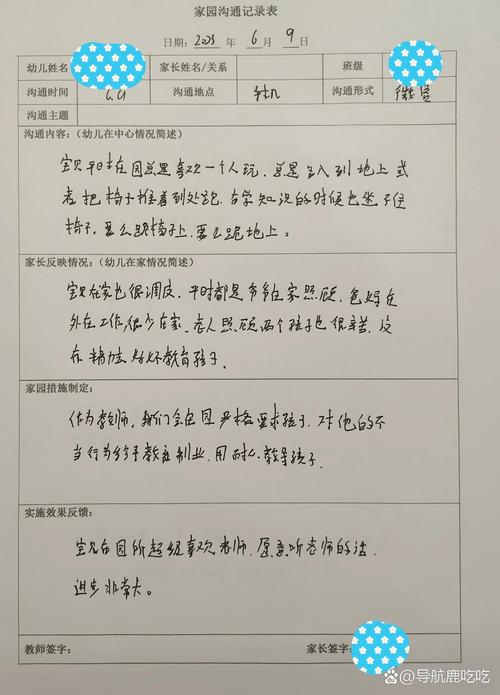 家园沟通记录表
日期：2023 年 6 月 9 日
幼儿姓名 家长姓名/关系 班级
沟通时间 6.9 沟通地点 手机 沟通形式 微信
沟通主题
沟通内容：（幼儿在中心情况简述）
宝贝平时在园总是喜欢一个人玩，总是 到地上或
者把椅子推着到处跑，在学知识的时候也坐不住
椅子，要么跪椅子上，要么跪地上。
家长反映情况：（幼儿在家情况简述）
宝贝在家也很调皮，平时都是爷爷在家照顾，爸妈在
外在工作，很少在家，老人照顾两个孩子也很辛苦，没
有精力去 教育孩子。
家园措施制定：
作为教师，我们会在园严格要求孩子，对他的不
当行为给予教育制止，用耐心教导孩子
实施效果反馈：
宝贝在园所超级喜欢老师，愿意听老师的话，
进步非常大。
教师签字： 家长签字：
@导航鹿吃吃